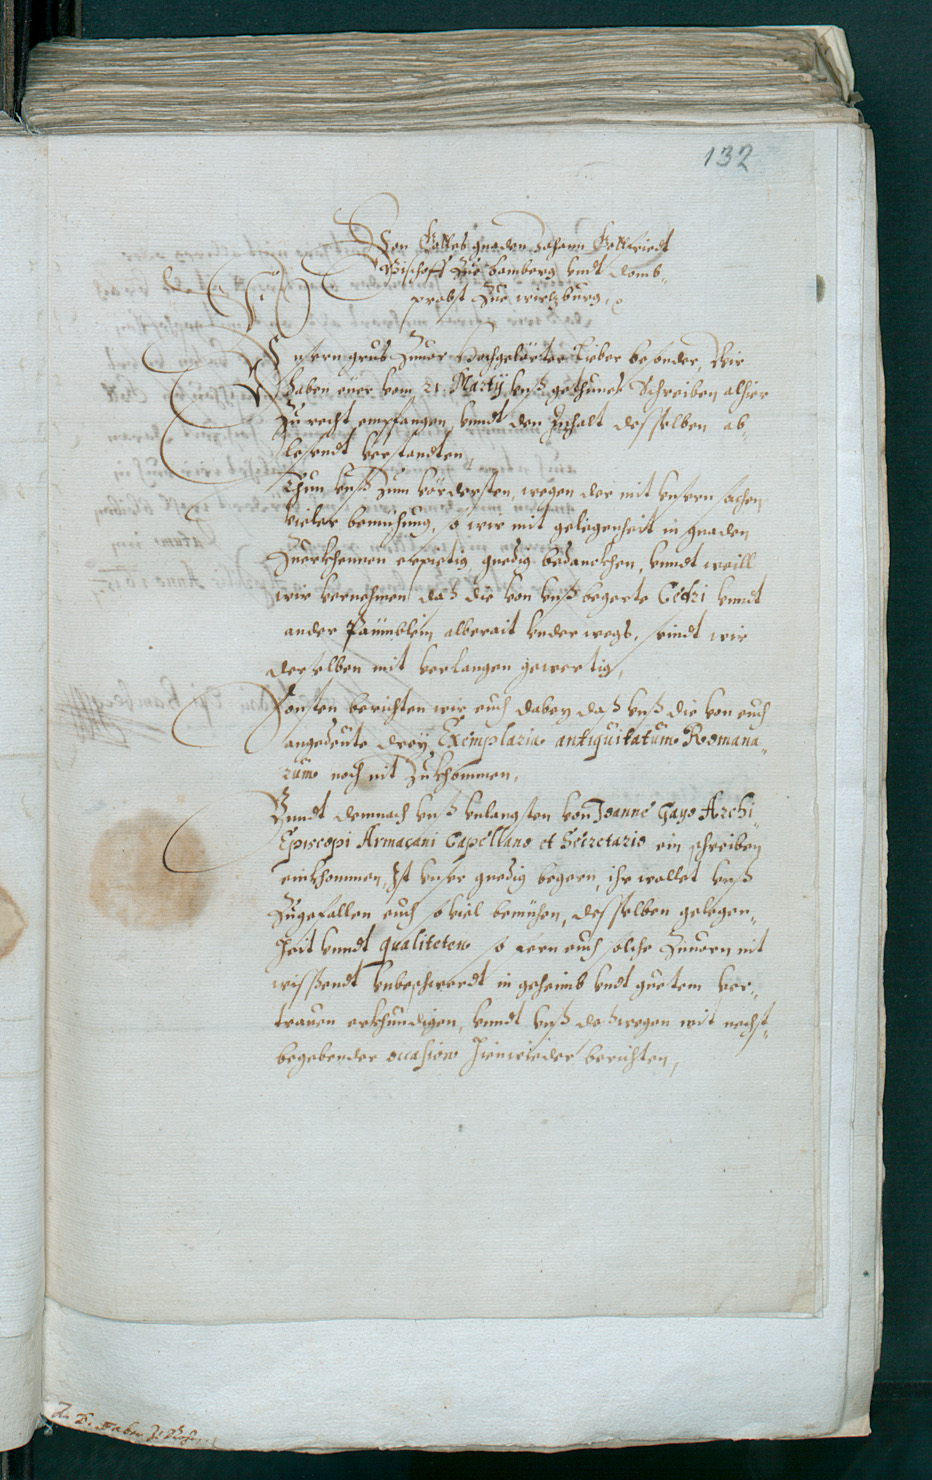 132
Von Gottes gnaden Johann Gottfriedt
Bischoff Zue Bamberg vndt Domb-
probst Zue wirtzburg, ꝛc
Vnsern grus Zuuor Hochgelärter Lieber besonder, Wir
haben eüer vom 21. Martÿ vnß gethanes Schreiben alhier
Zu recht empfangen vnndt den Inhalt desselben ab-
lesendt verstandten
Thun vnß Zum vördersten, wegen der mit vnsern sachen
vieler bemühung, so wir mit gelegenheit in gnaden
Zuerkhennen erpietig, gnedig bedanckhen, vnndt weill
wir vernehmen daß die von vnß begerte Cedri vnndt
andere Päümblein alberait vnder wegs, seindt wir
derselben mit verlangen gewertig,
Sonsten berichten wir euch dabey daß vnß die von euch
angedeute dreÿ Exemplaria antiquitatum Romana-
rum noch nit Zukhommen,
Vnndt demnach vnß vnlangsten von Joanne Gago Archi-
Episcopi Armacani Capellano et Secretario ein schreiben
einkhommen, Ist vnser gnedig begern, ihr wollet vnß
Zugefallen euch soviel bemühen, desselben gelegen-
heit vnndt qualiteten so fern euch solche Zuuorn nit
wissendt vnbeschwerdt in geheimb vndt guetem ver-
trauen erkhundigen, vnndt vnß deßwegen mit nechst-
begebender occasion hinwieder berichten,